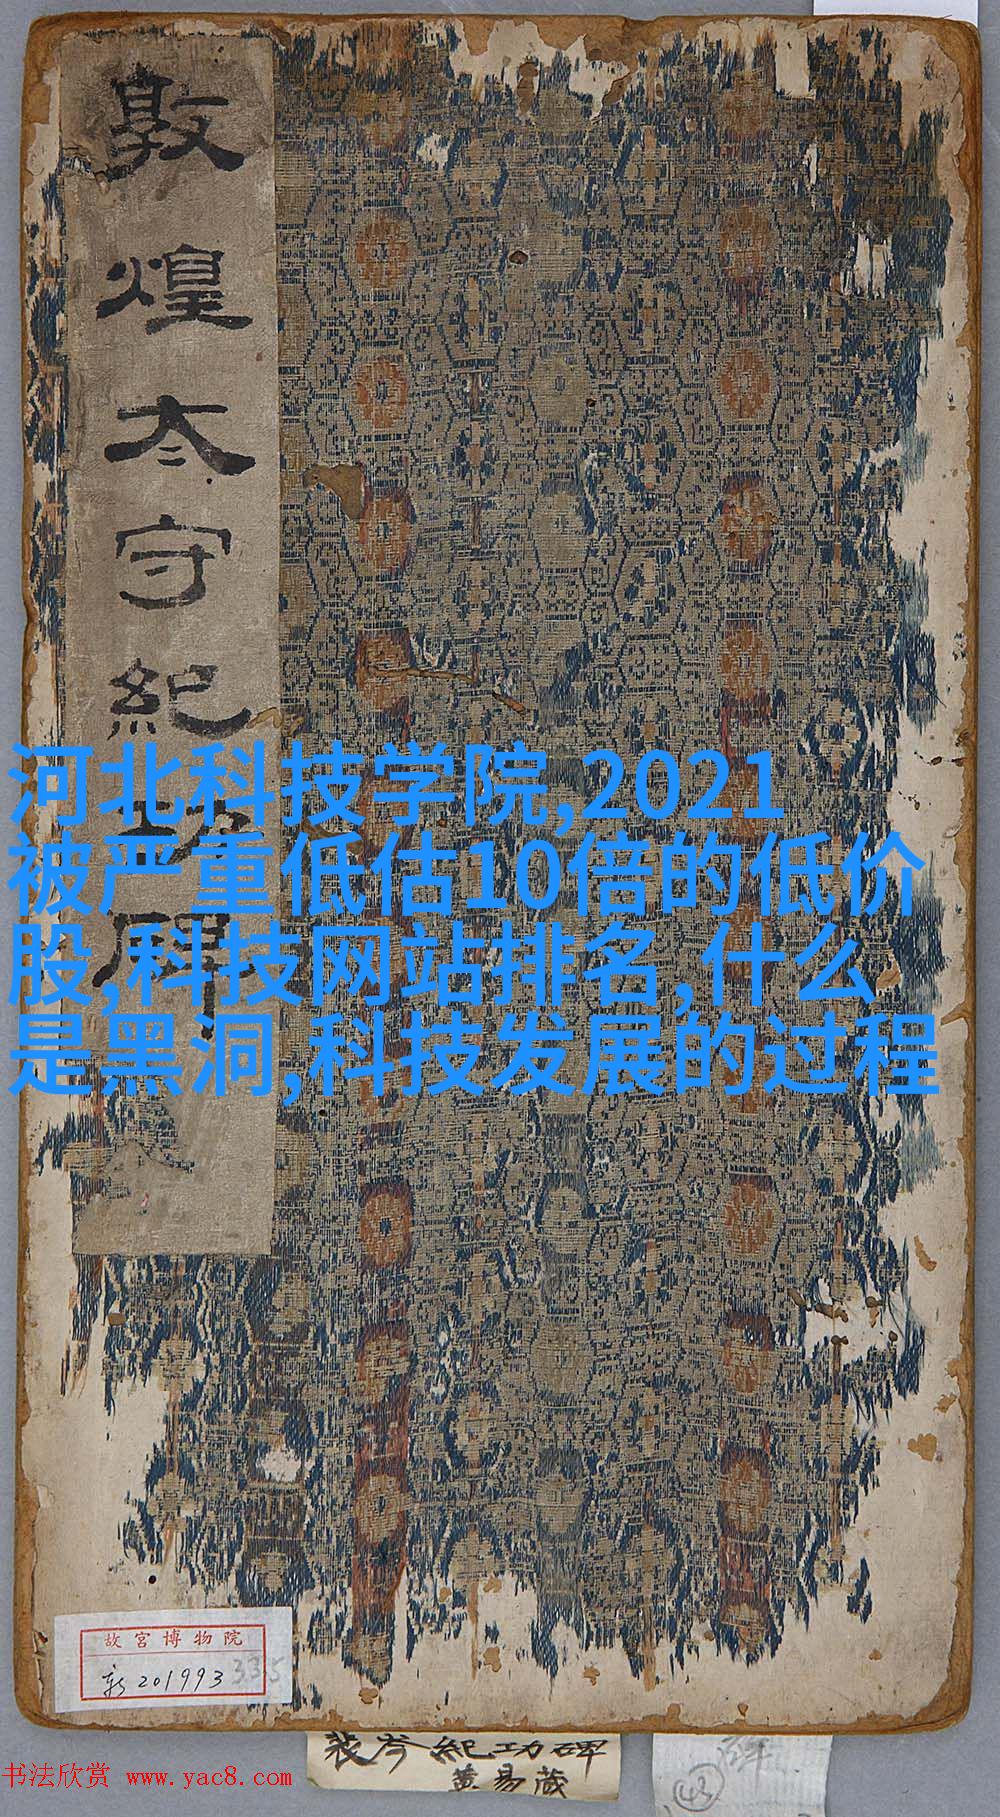 敦煌太守紀功碑
河北科技学院,2021
被严重低估10倍的低价
股,科技网站排名,什么
是黑洞,科技发展的过程
故宫博物院
新201993
335
裴岑紀功碑
黄易藏
书法欣赏 www.yac8.com